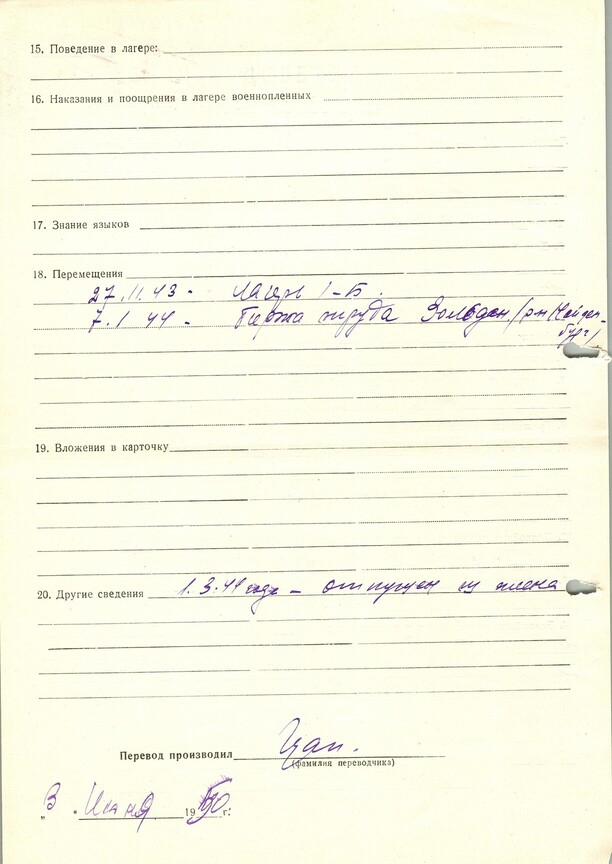 15. Поведение в лагере:
16. Наказания и поощрения в лагере военнопленных
17. Знание языков
18. Перемещения
27.11.43 - Лагерь 1-Б.
7.1 44 - Биржа труда Зольдан /р-н Найден-
бург/
19. Вложения в карточку
20. Другие сведения 1.3.44 года - отпущен из плена
Перевод производил
(фамилия переводчика)
„3 " Июня 1950 г.